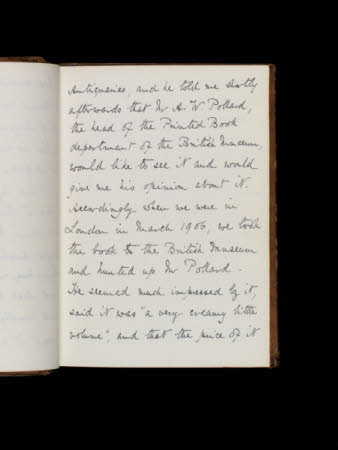 Antiquaries, and he told me shortly
afterwards that Mr A. W Pollard,
the head of the Printed Book
department of the British Museum,
would like to see it and would
give me his opinion about it.
Accordingly when we were in
London in March 1906, we took
the book to the British Museum
and hunted up Mr Pollard.
He seemed much impressed by it,
said it was "a very creamy little
volume", and that the price of it